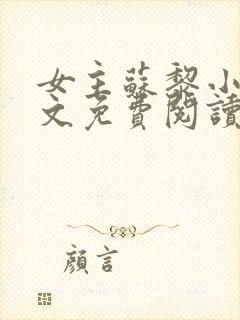 女主蘇黎小
文免費閱讀
顏言